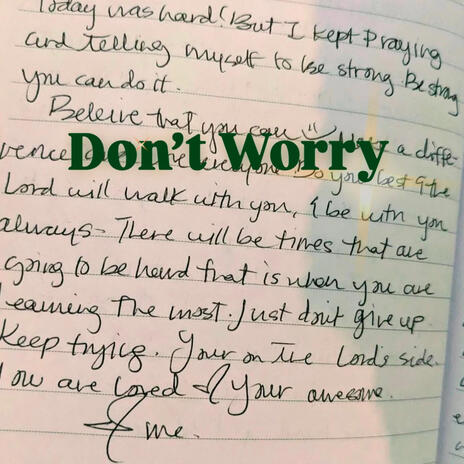 Today was hard! But I kept Praying
and telling myself to be strong. Be strong
you can do it.
Beleive that you can a diffe-
Don't Worry
rence everyone Do your best & the
Lord will walk with you, & be with you
always - There will be times that are
going to be heard that is when you are
Learning The most. Just don't give up.
Keep trying. Your on the Lord's side.
You are loved & Your awesome.
& me.